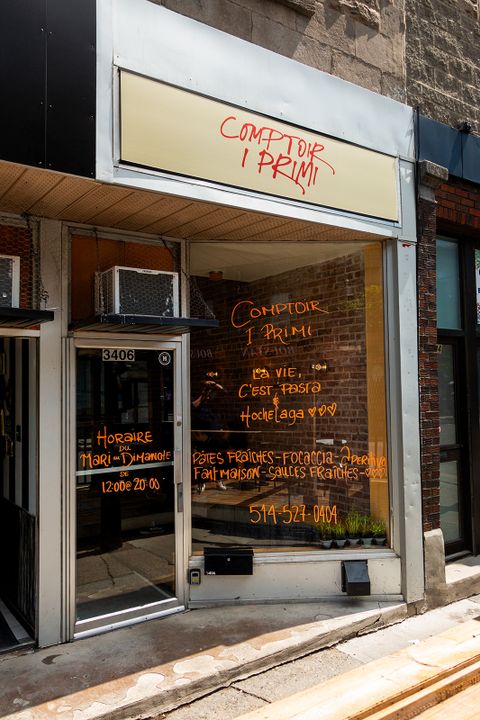 COMPTOIR
I PRIMI
3406
COMPTOIR
I PRIMI
LA VIE,
C'EST PASTA
&
HOCHELAGA ♡♡♡
HORAIRE
DU
MARDI AU DIMANCHE
DE
12:00 @ 20:00
PÂTES FRAÎCHES - FOCACCIA - APERITIVO
FAIT MAISON - SAUCES FRAÎCHES - ♡♡♡
514-527-0404